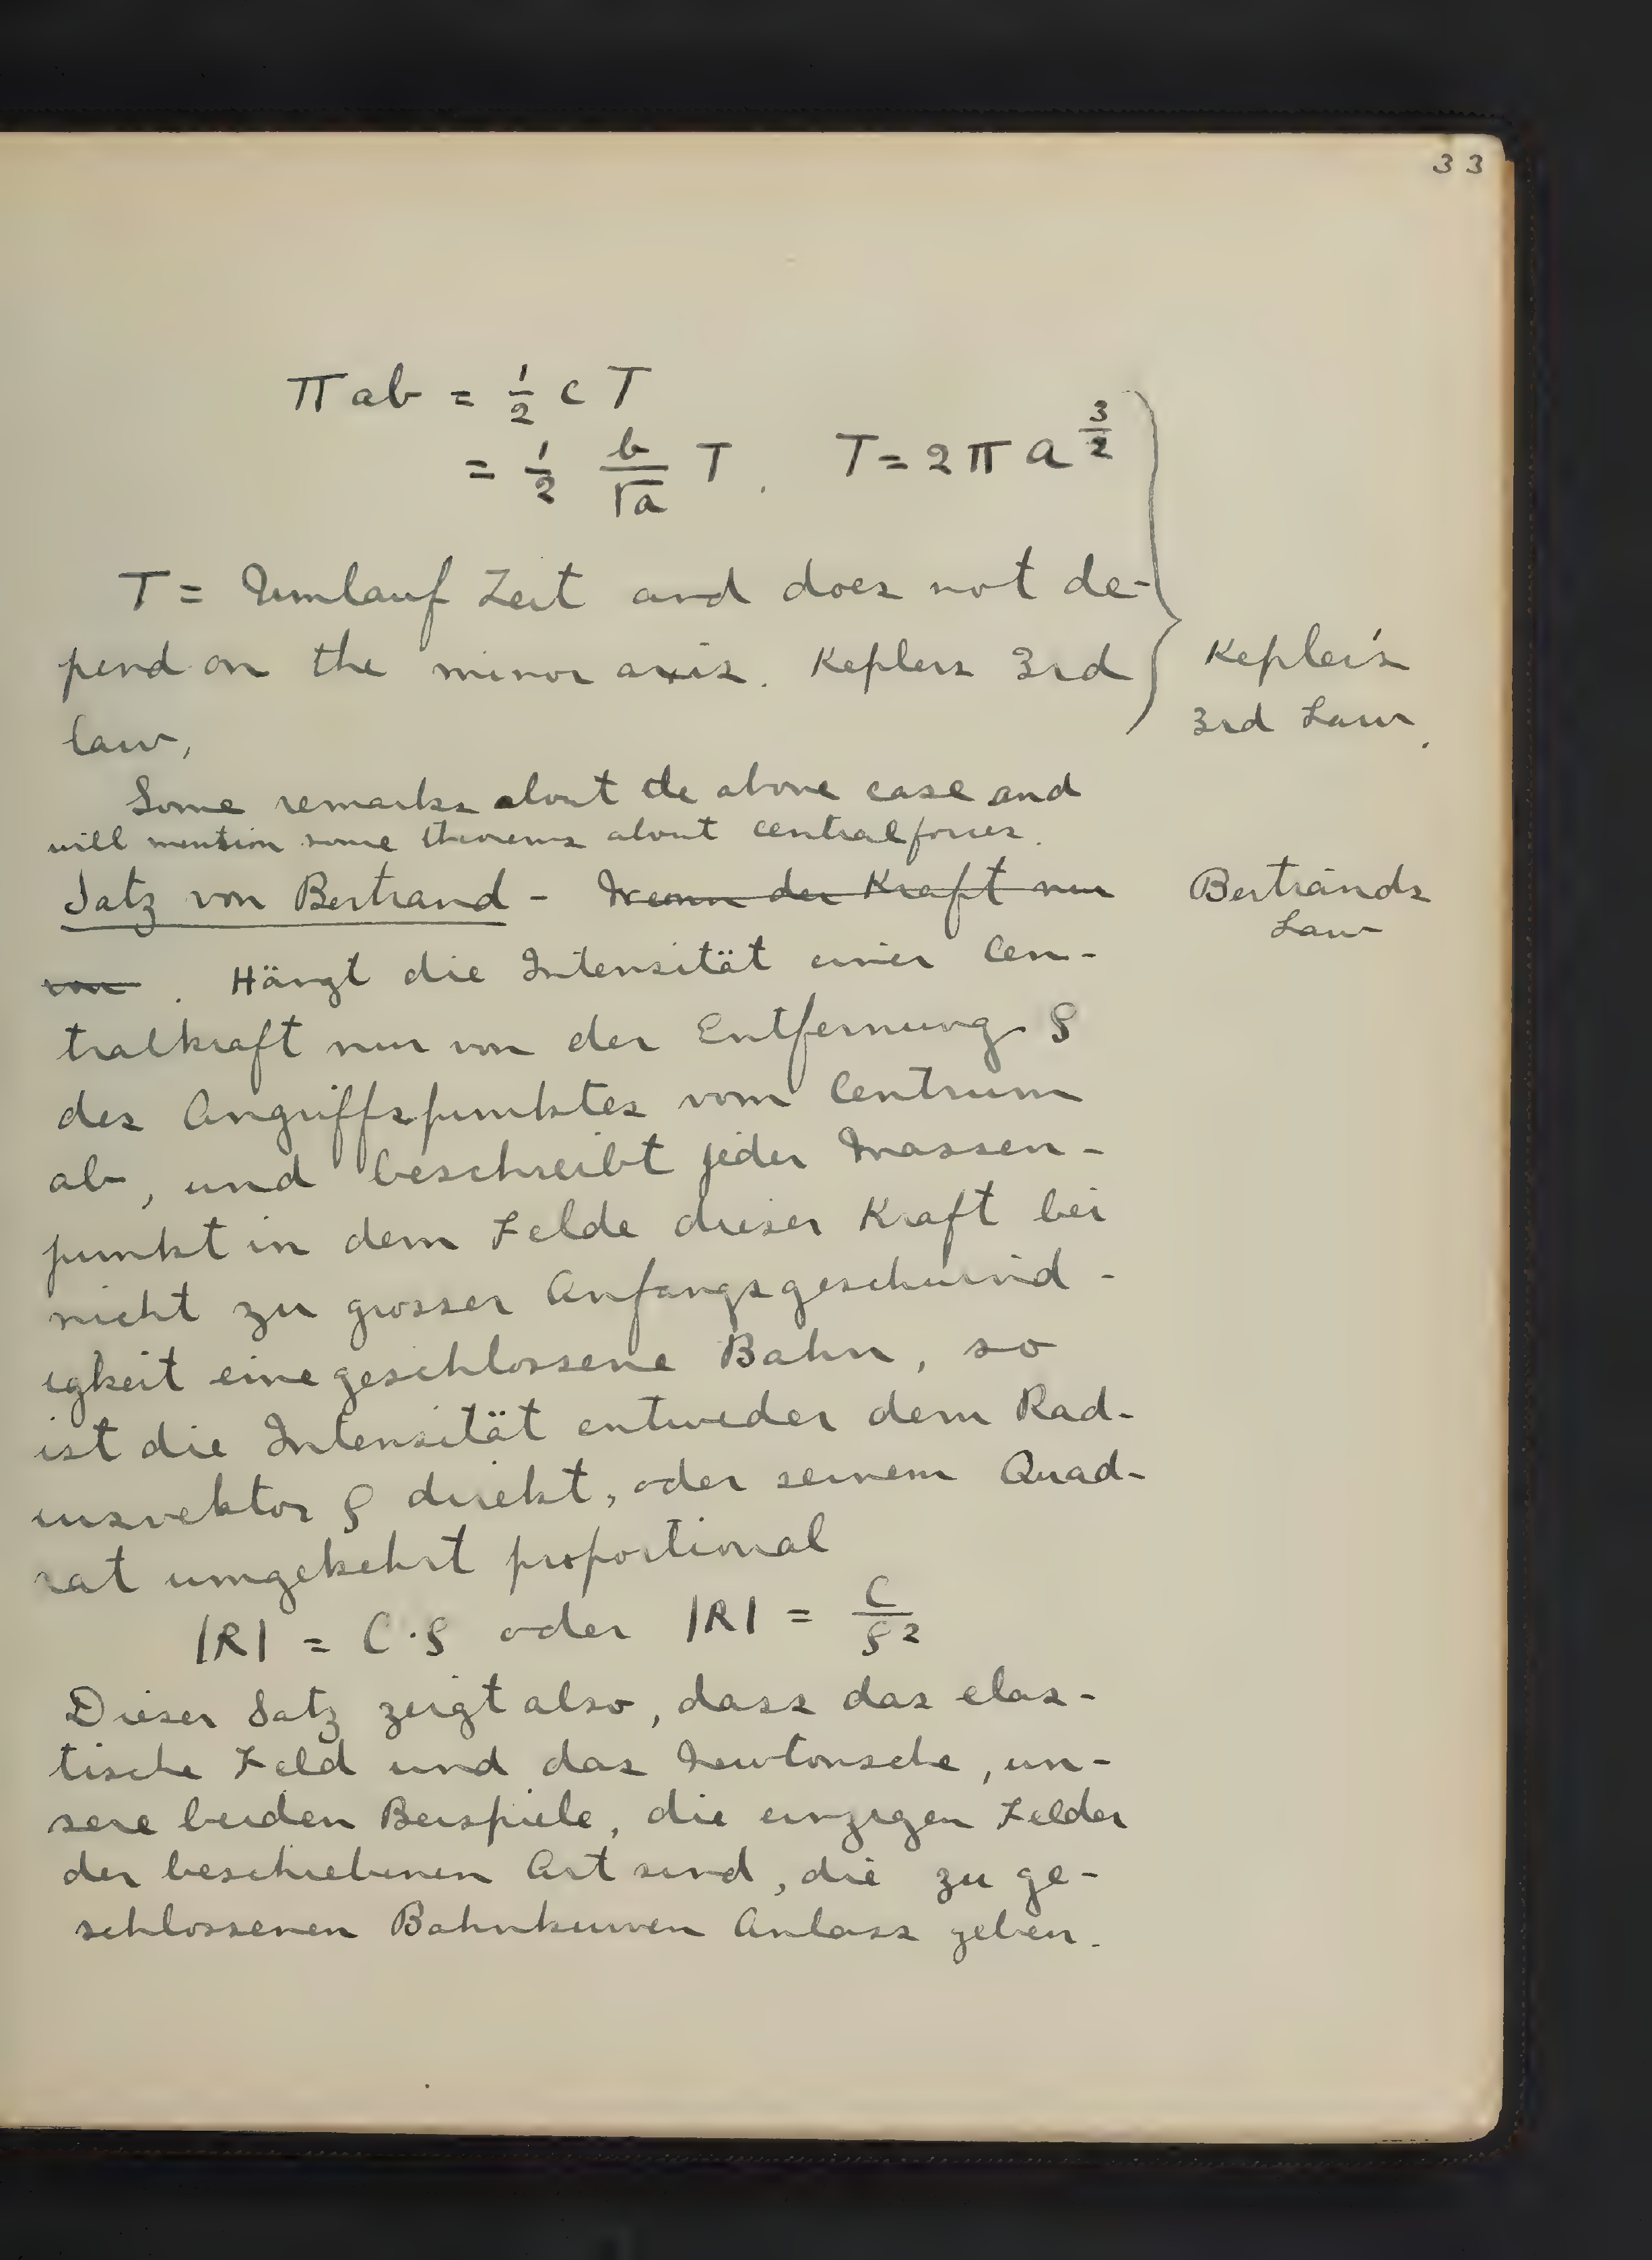 33
πab = 1/2 c T
= 1/2 b/√a T. T = 2πa^(3/2)
T = Umlauf Zeit and does not de-
pend on the minor axis. Keplers 3rd
law,
Kepler's
3rd Law.
Some remarks about the above case and
will mention some theorems about central forces.
Satz von Bertrand - Wenn der Kraft nur
Bertrands
Law
von . Hängt die Intensität einer Cen-
tralkraft nur von der Entfernung ρ
des Angriffspunktes vom Centrum
ab, und beschreibt jeder Massen-
punkt in dem Felde dieser Kraft bei
nicht zu grosser Anfangsgeschwind-
igkeit eine geschlossene Bahn, so
ist die Intensität entweder dem Rad-
iusvektor ρ direkt, oder seinem Quad-
rat umgekehrt proportional
|R| = C·ρ oder |R| = C/ρ²
Dieser Satz zeigt also, dass das elas-
tische Feld und das Newtonsche, un-
sere beiden Beispiele, die einzigen Felder
der beschriebenen Art sind, die zu ge-
schlossenen Bahnkurven Anlass geben.